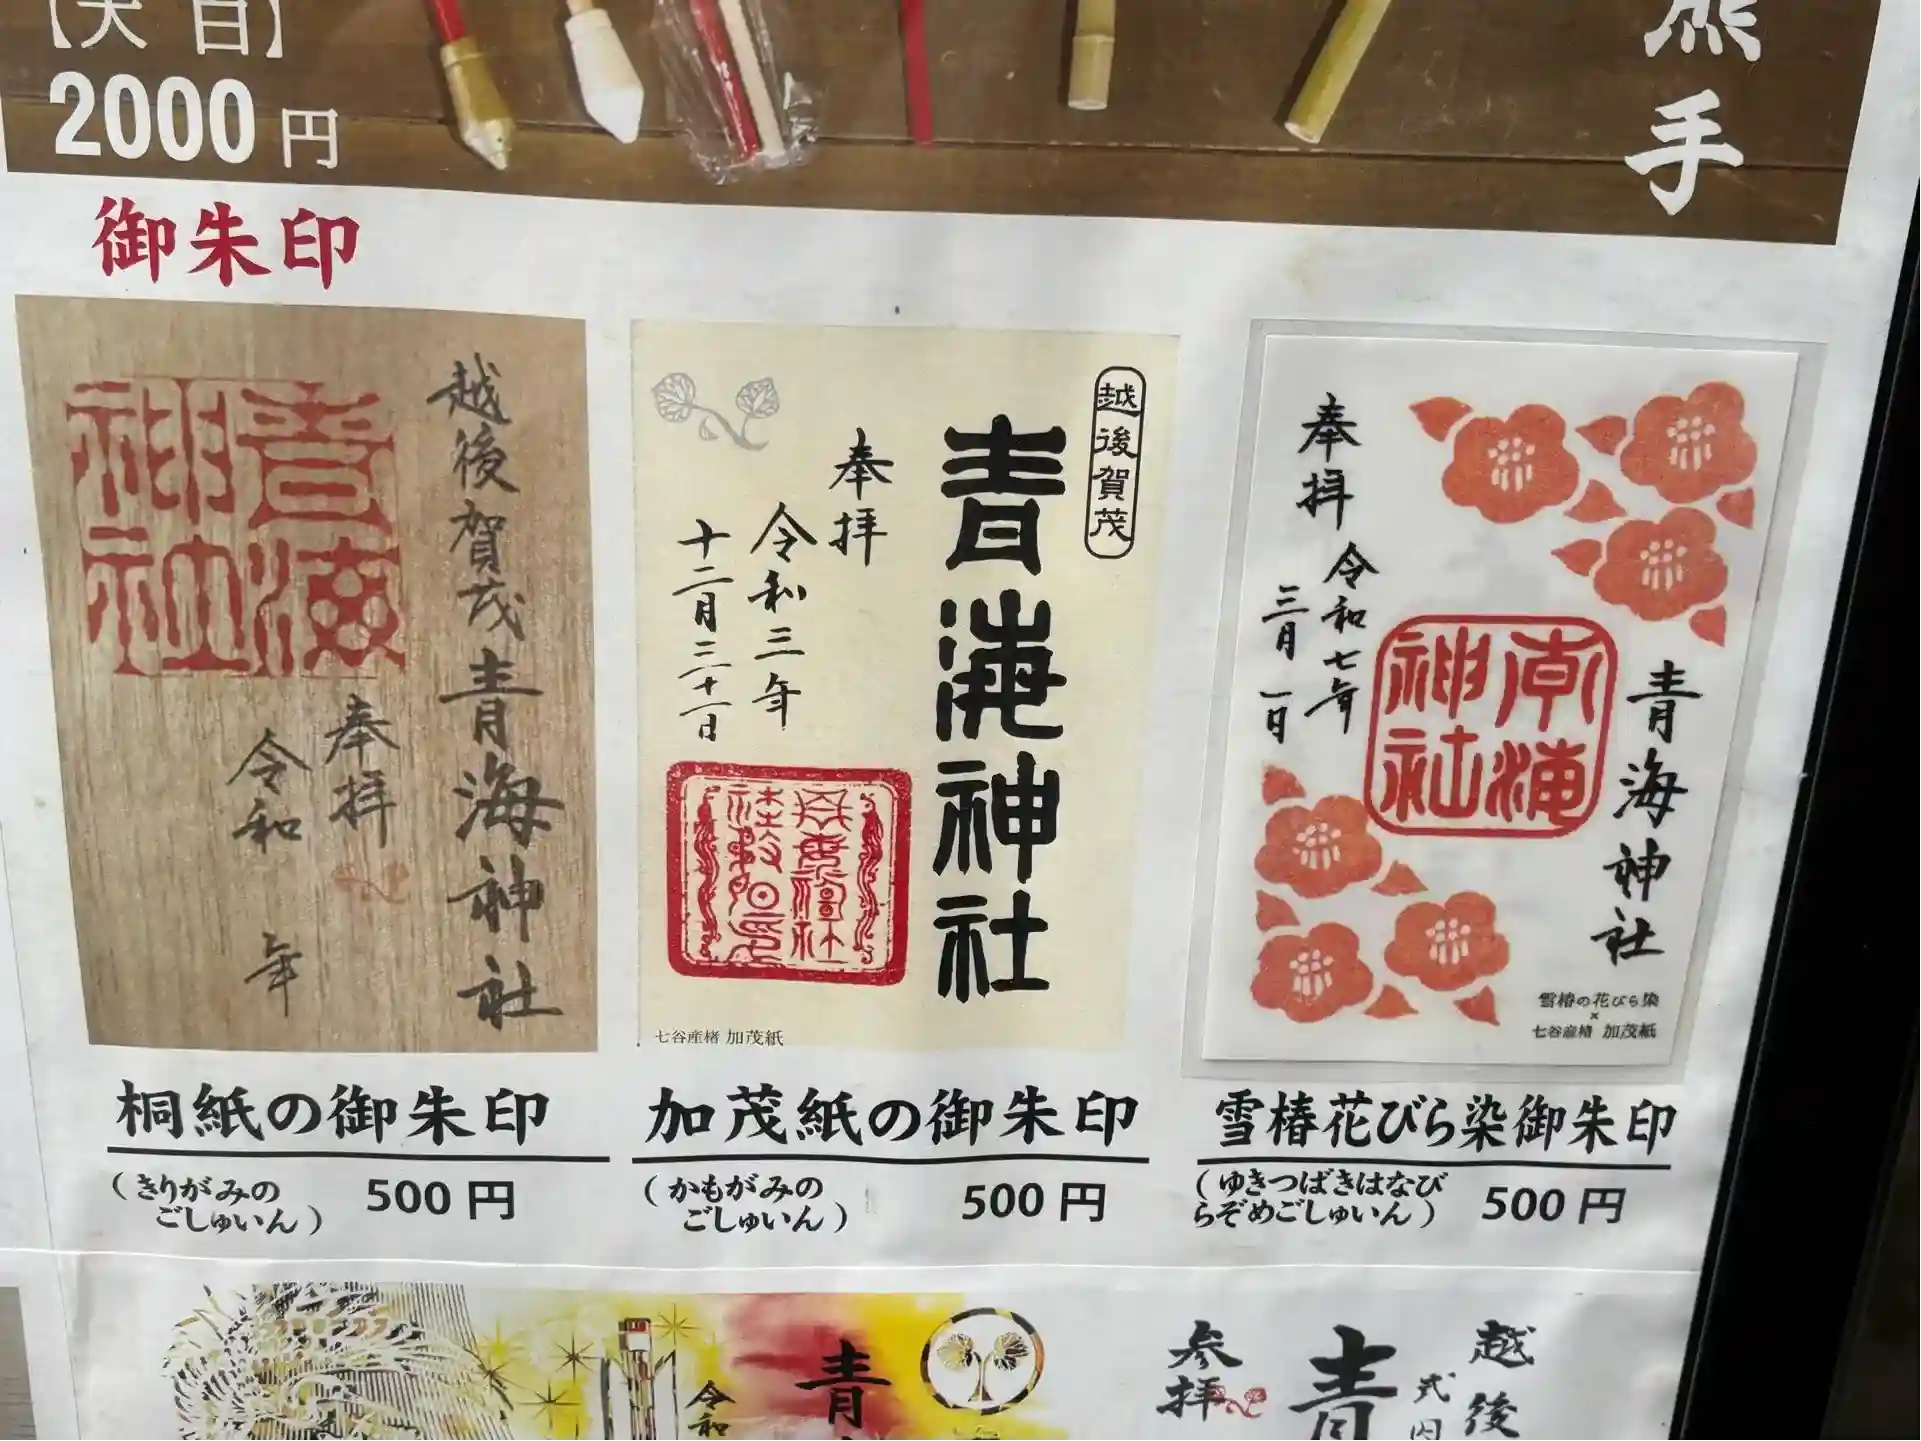 【大 白】
2000 円
熊手
御朱印
越後賀茂青海神社
奉拝
令和 年
青海神社
越後賀茂
青海神社
奉拝
令和三年
十二月三十一日
七谷産楮 加茂紙
奉拝
令和七年
三月一日
青海神社
青海神社
雪椿の花びら染
×
七谷産楮 加茂紙
桐紙の御朱印
(きりがみの
ごしゅいん)
500 円
加茂紙の御朱印
(かもがみの
ごしゅいん)
500 円
雪椿花びら染御朱印
(ゆきつばきはなび
らぞめごしゅいん)
500 円
令和
青
参拝
青
式内
越後